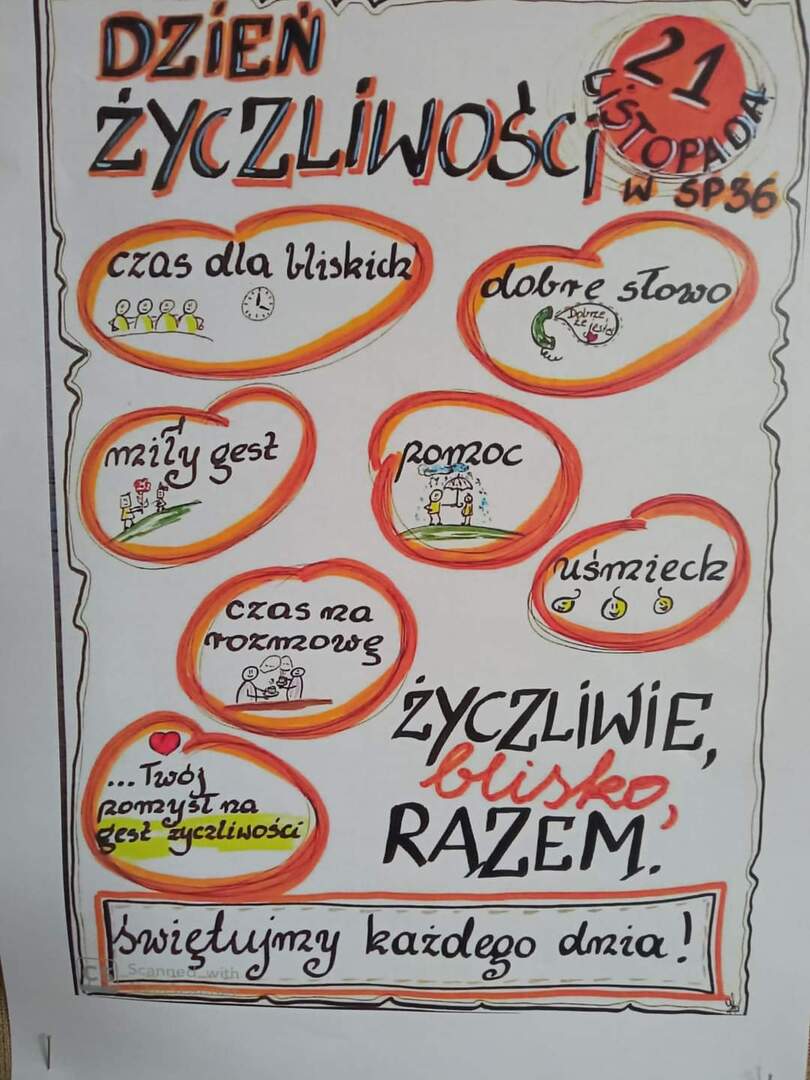 DZIEŃ
ŻYCZLIWOŚCI
21
LISTOPADA
W SP36
czas dla bliskich
dobre słowo
Dobrze,
że jesteś
miły gest
pomoc
uśmiech
czas na
rozmowę
ŻYCZLIWIE,
blisko,
RAZEM.
... Twój
pomysł na
gest życzliwości
świętujmy każdego dnia!
Scanned with